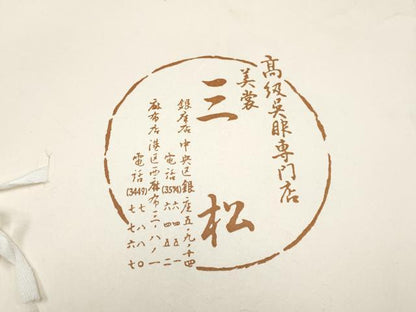 高級呉服専門店
美裳
三松
銀座店 中央区銀座五・九・十四
電話(3574)六四五二
麻布店 港区西麻布三・八・一
電話(3449)七七八八
七六七〇